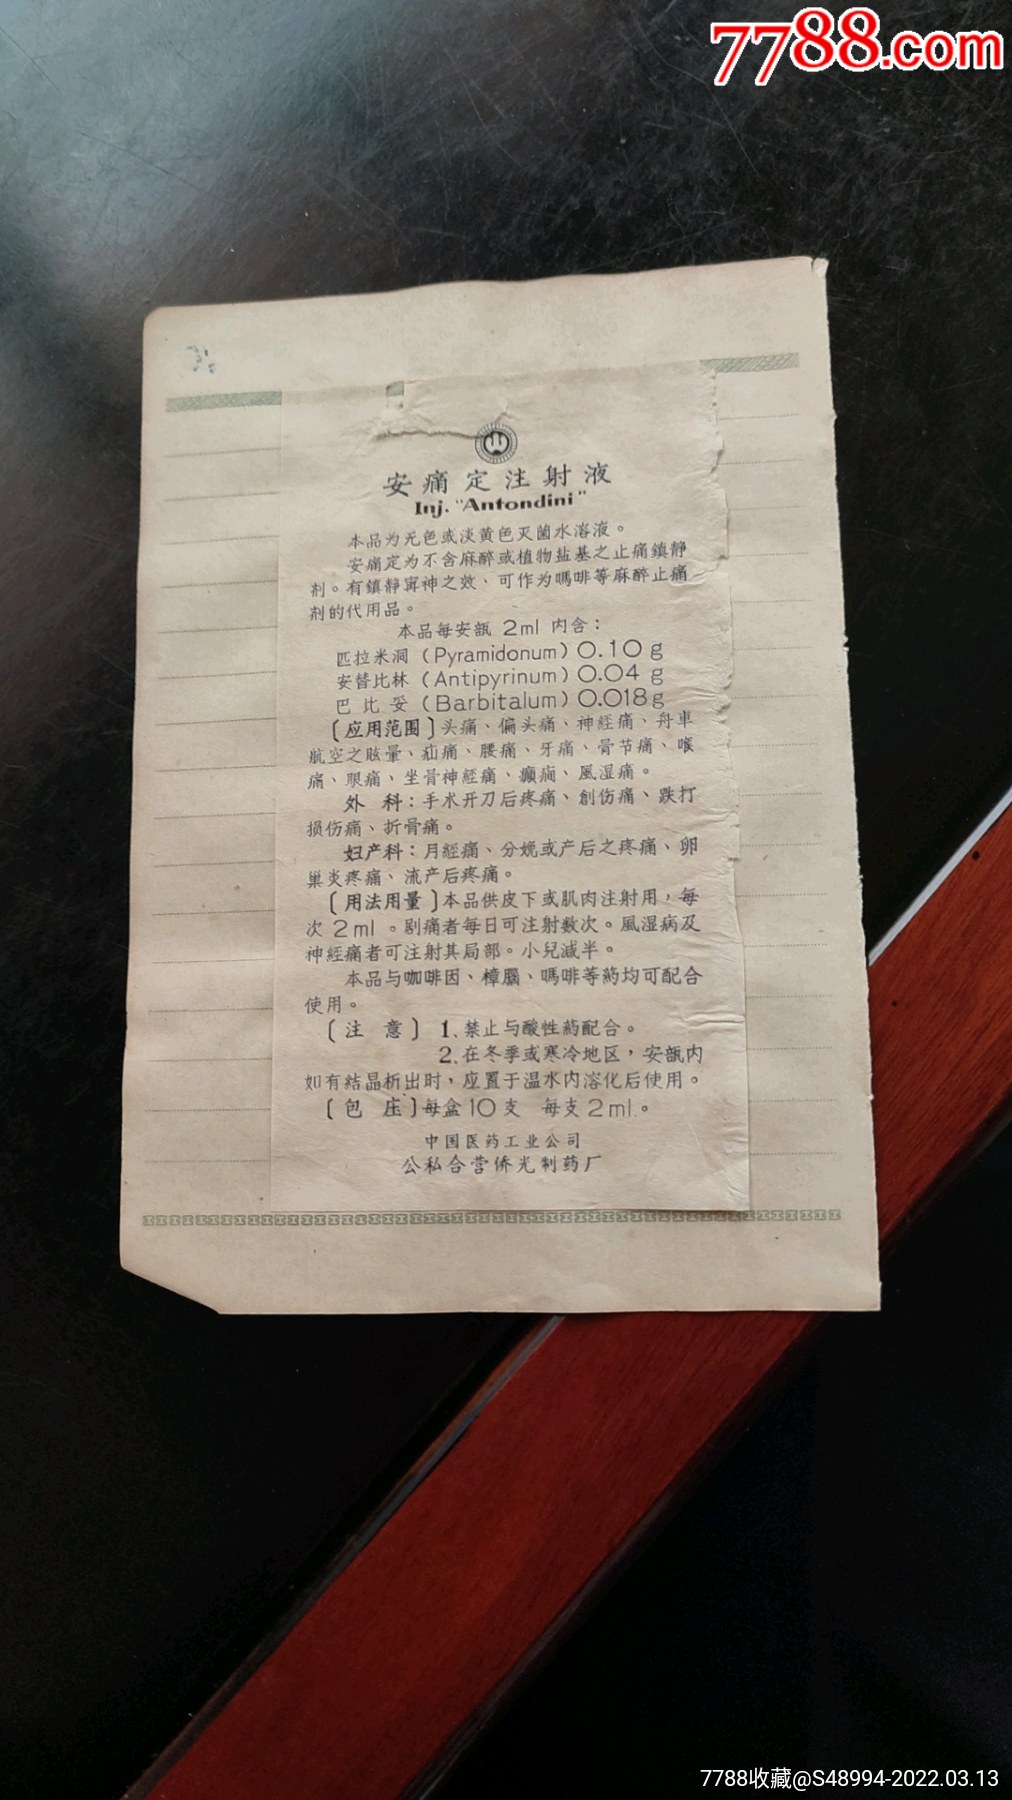 7788.com
安痛定注射液
Inj. "Antondini"
本品为无色或淡黄色灭菌水溶液。
安痛定为不含麻醉或植物盐基之止痛鎮静
剂。有鎮静寧神之效、可作为嗎啡等麻醉止痛
剂的代用品。
本品每安瓿 2ml 内含：
匹拉米洞（Pyramidonum）0.10 g
安替比林（Antipyrinum）0.04 g
巴比妥（Barbitalum）0.018g
〔应用范围〕头痛、偏头痛、神經痛、舟車
航空之眩暈、疝痛、腰痛、牙痛、骨节痛、喉
痛、眼痛、坐骨神經痛、癲痫、風湿痛。
外 科：手术开刀后疼痛、創伤痛、跌打
损伤痛、折骨痛。
妇产科：月經痛、分娩或产后之疼痛、卵
巢炎疼痛、流产后疼痛。
〔用法用量〕本品供皮下或肌肉注射用，每
次 2ml 。剧痛者每日可注射数次。風湿病及
神經痛者可注射其局部。小兒减半。
本品与咖啡因、樟腦、嗎啡等葯均可配合
使用。
〔注 意〕 1、禁止与酸性葯配合。
2、在冬季或寒冷地区，安瓿内
如有結晶析出时，应置于温水内溶化后使用。
〔包 庄〕每盒10支 每支2ml.。
中国医药工业公司
公私合营侨光制药厂
7788收藏@S48994-2022.03.13